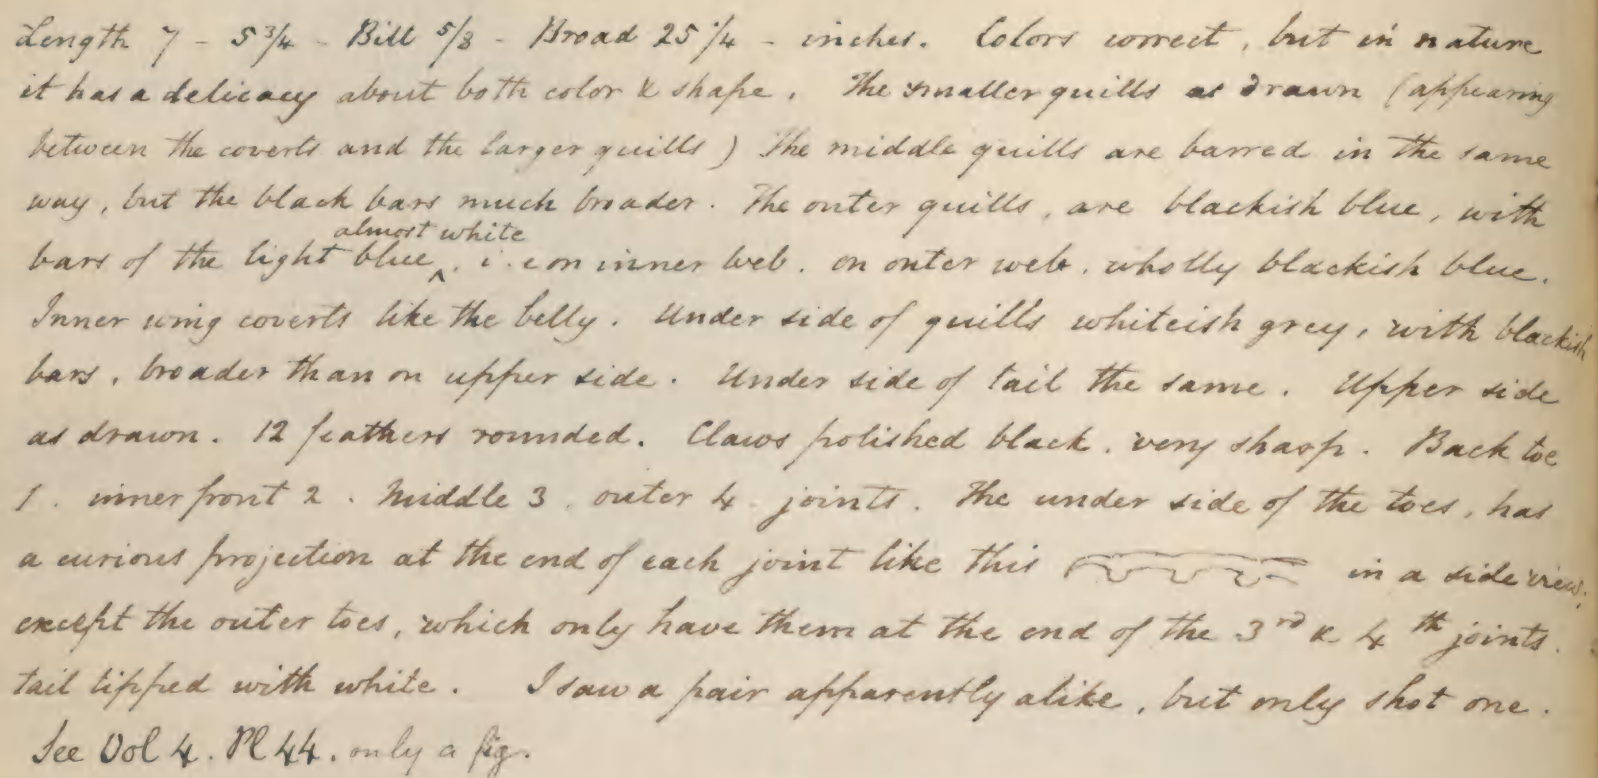 Length 7 - 5 3/4 - Bill 5/8 - Broad 25 1/4 - inches. Colors correct, but in nature
it has a delicacy about both color & shape. The smaller quills as drawn (appearing
between the coverts and the larger quills) The middle quills are barred in the same
way, but the black bars much broader. The outer quills, are blackish blue, with
almost white
bars of the light blue ^, i.e on inner web. on outer web. wholly blackish blue.
Inner wing coverts like the belly. Under side of quills whiteish grey, with blackish
bars, broader than on upper side. Under side of tail the same. Upper side
as drawn. 12 feathers rounded. Claws polished black. very sharp. Back toe
1. inner front 2. Middle 3. outer 4 joints. The under side of the toes, has
a curious projection at the end of each joint like this in a side view,
except the outer toes, which only have them at the end of the 3rd & 4th joints.
tail tipped with white. I saw a pair apparently alike, but only shot one.
See Vol 4. Pl 44. only a fig.